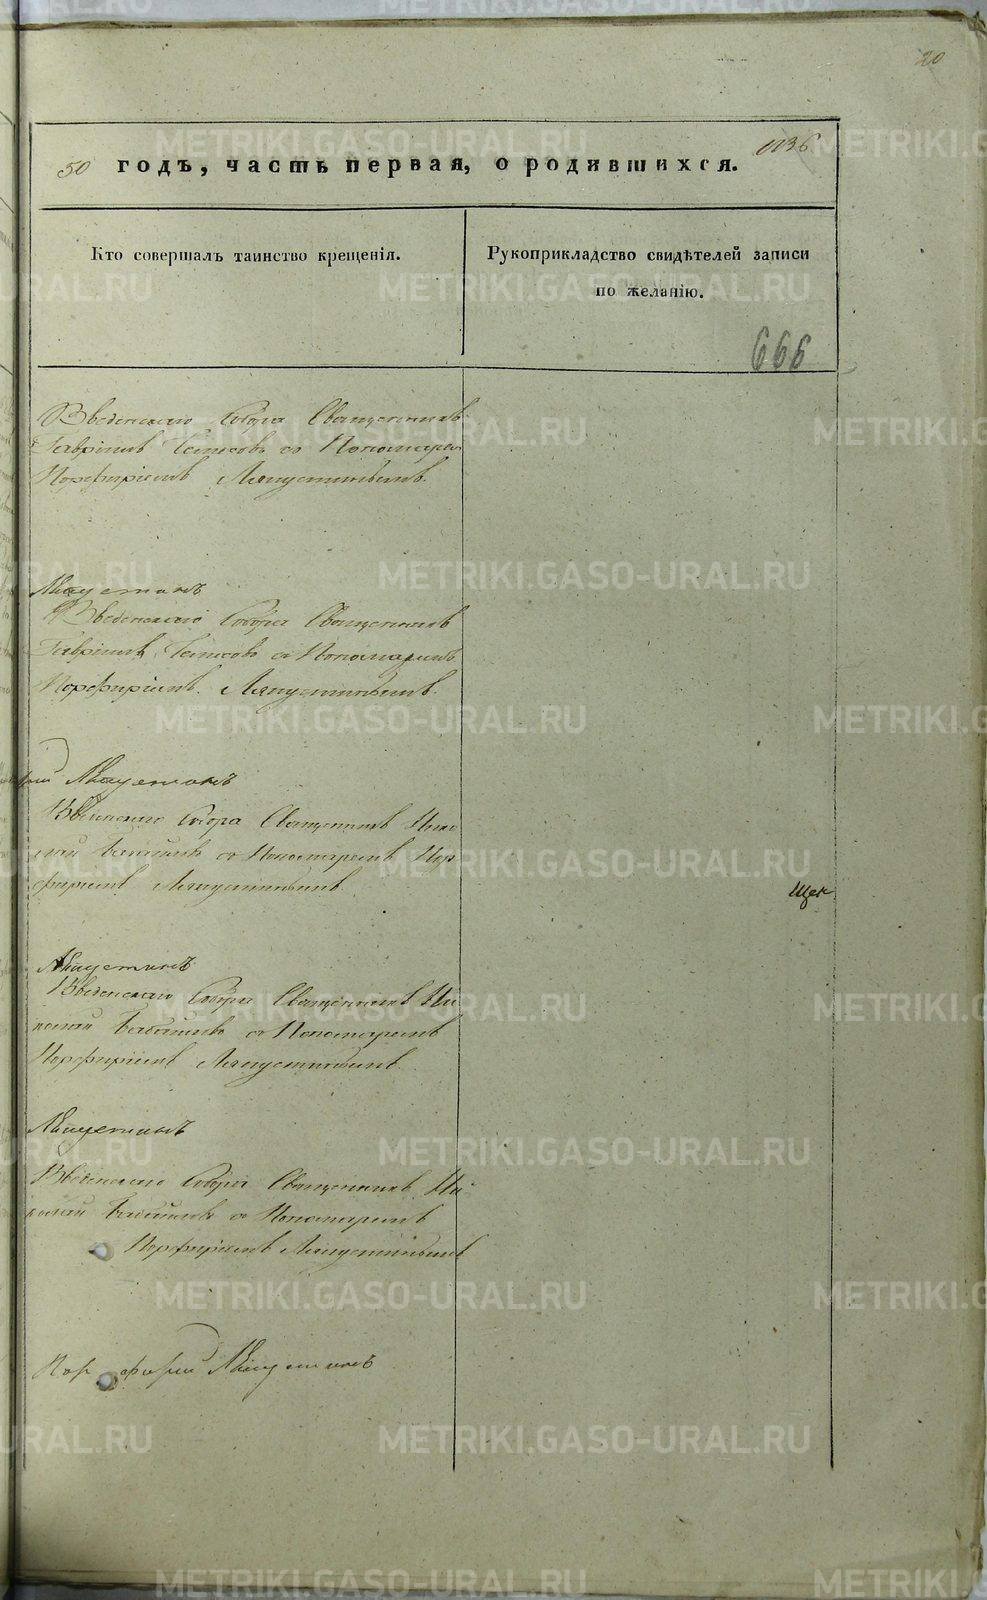 20
1136
50 годъ, часть первая, о родившихся.
Кто совершалъ таинство крещенія.
Рукоприкладство свидѣтелей записи
по желанію.
666
Введенскаго Собора Священникъ
Гавріилъ с Пономаремъ
Порфиріемъ Ляпустинымъ.
Ляпустинъ
Введенскаго Собора Священникъ
Гавріилъ с Пономаремъ
Порфиріемъ Ляпустинымъ.
Ляпустинъ
Введенскаго Собора Священникъ Нико
лай с Пономаремъ Пор
фиріемъ Ляпустинымъ
Щек
Ляпустинъ
Введенскаго Собора Священникъ Ни
колай с Пономаремъ
Порфиріемъ Ляпустинымъ
Ляпустинъ
Введенскаго Собора Священникъ Ни
колай с Пономаремъ
Порфиріемъ Ляпустинымъ
Порфирий Ляпустинъ
METRIKI.GASO-URAL.RU